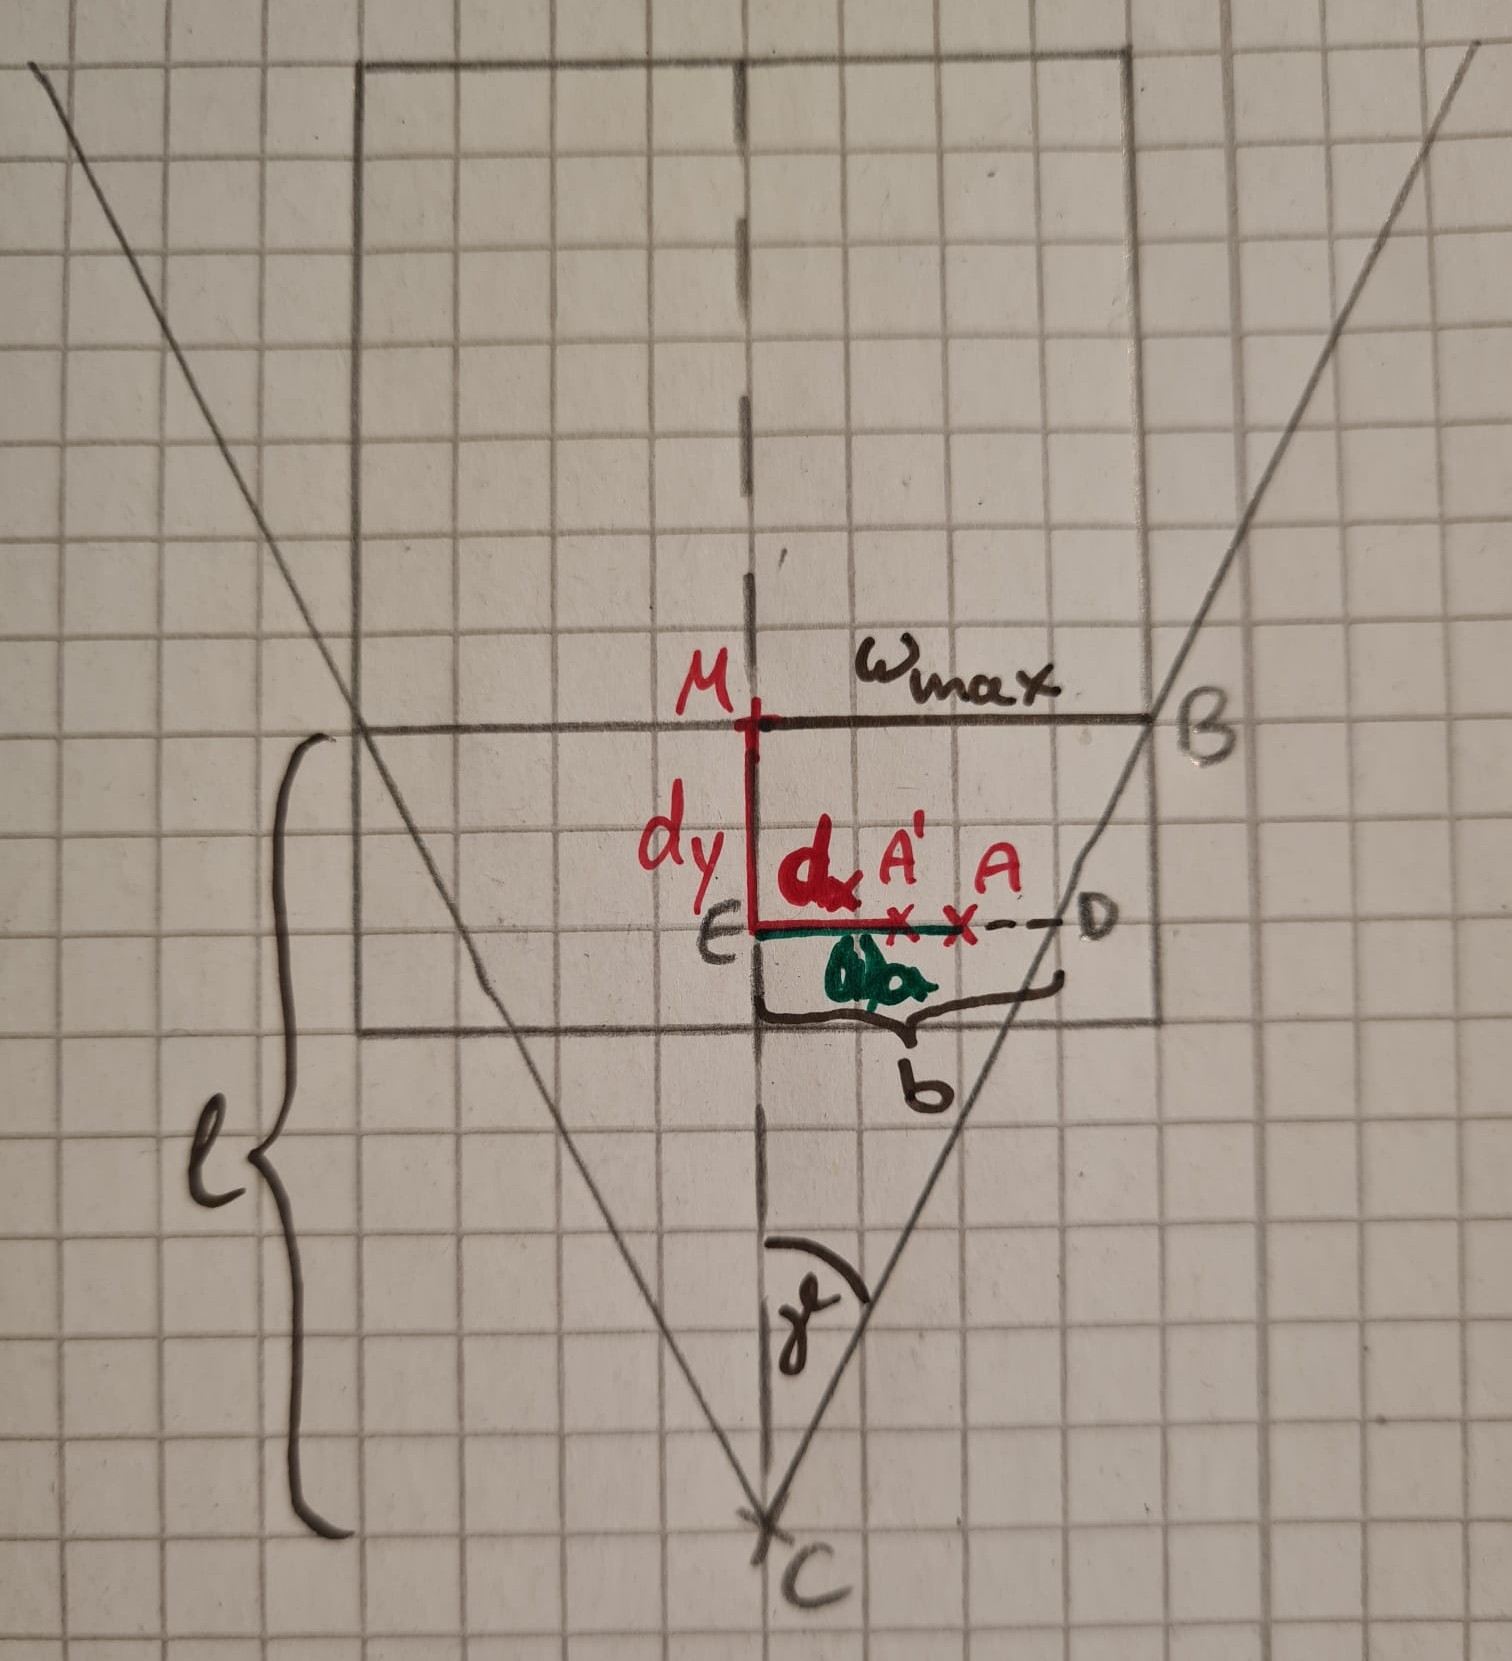 M
ωmax
B
dy
dx
A'
A
E
D
b
l
C